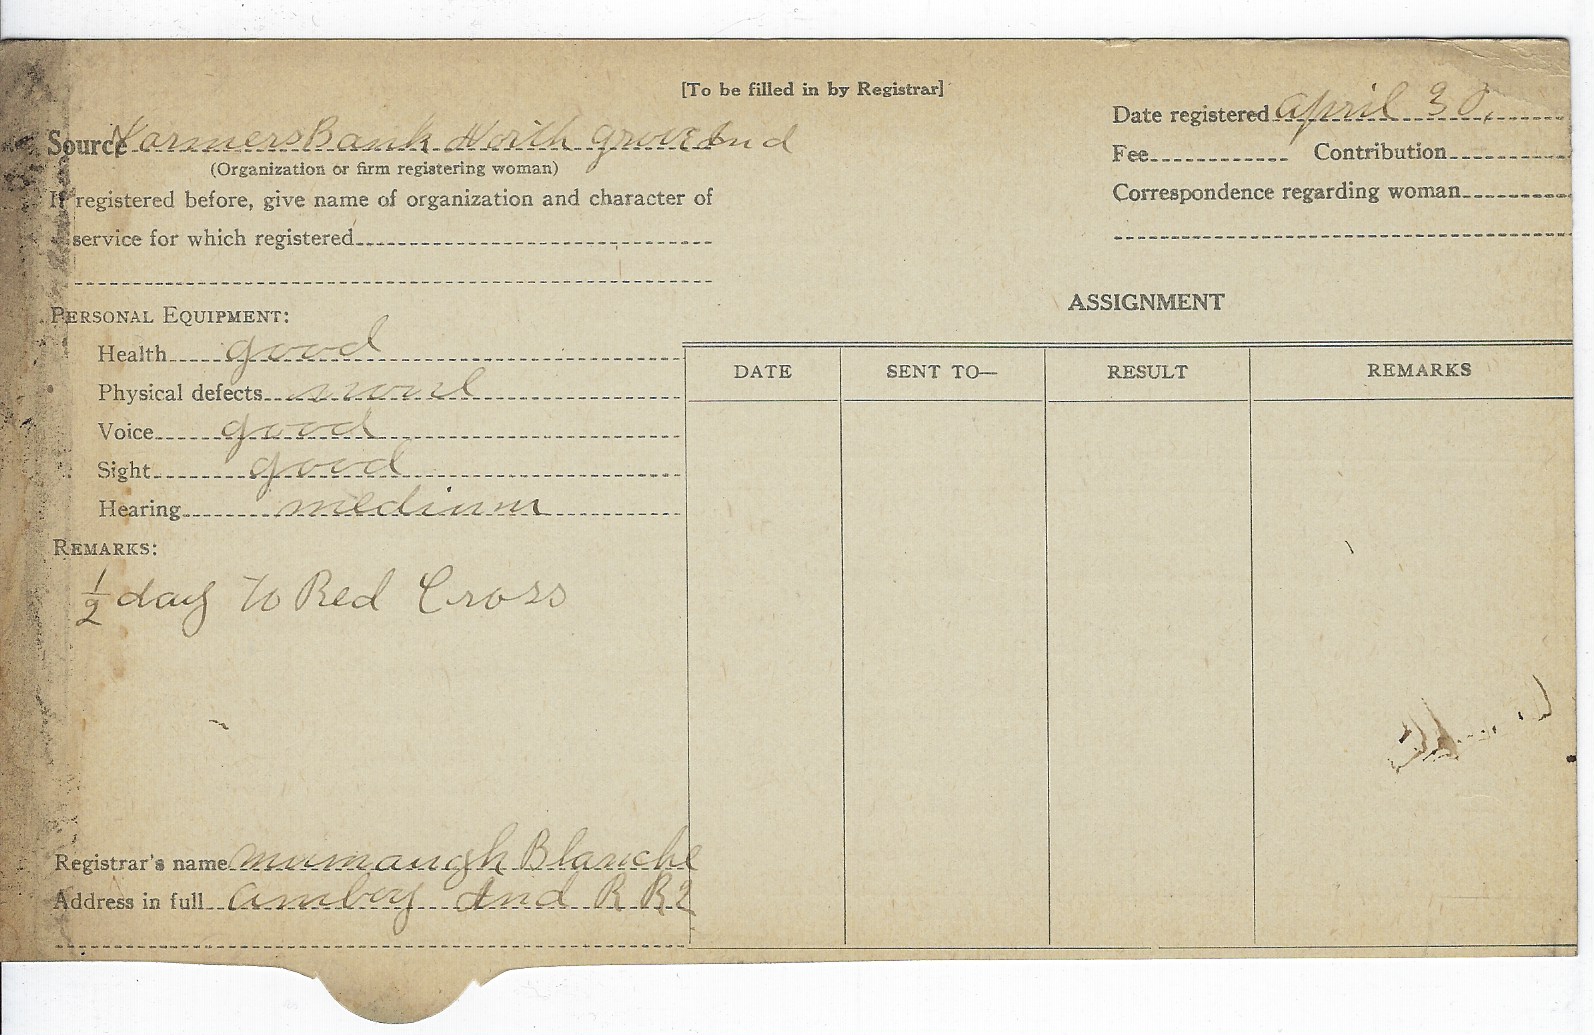 [To be filled in by Registrar]
Source Farmers Bank North Grove Ind
(Organization or firm registering woman)
If registered before, give name of organization and character of
service for which registered
Date registered April 30,
Fee Contribution
Correspondence regarding woman
PERSONAL EQUIPMENT:
Health good
Physical defects none
Voice good
Sight good
Hearing medium
REMARKS:
1/2 day to Red Cross
Registrar's name Mumaugh Blanche
Address in full Amboy Ind R R2
ASSIGNMENT
DATE SENT TO— RESULT REMARKS